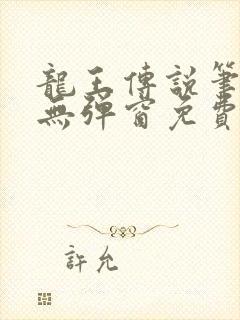 龍王傳說筆
無彈窗免費
許允